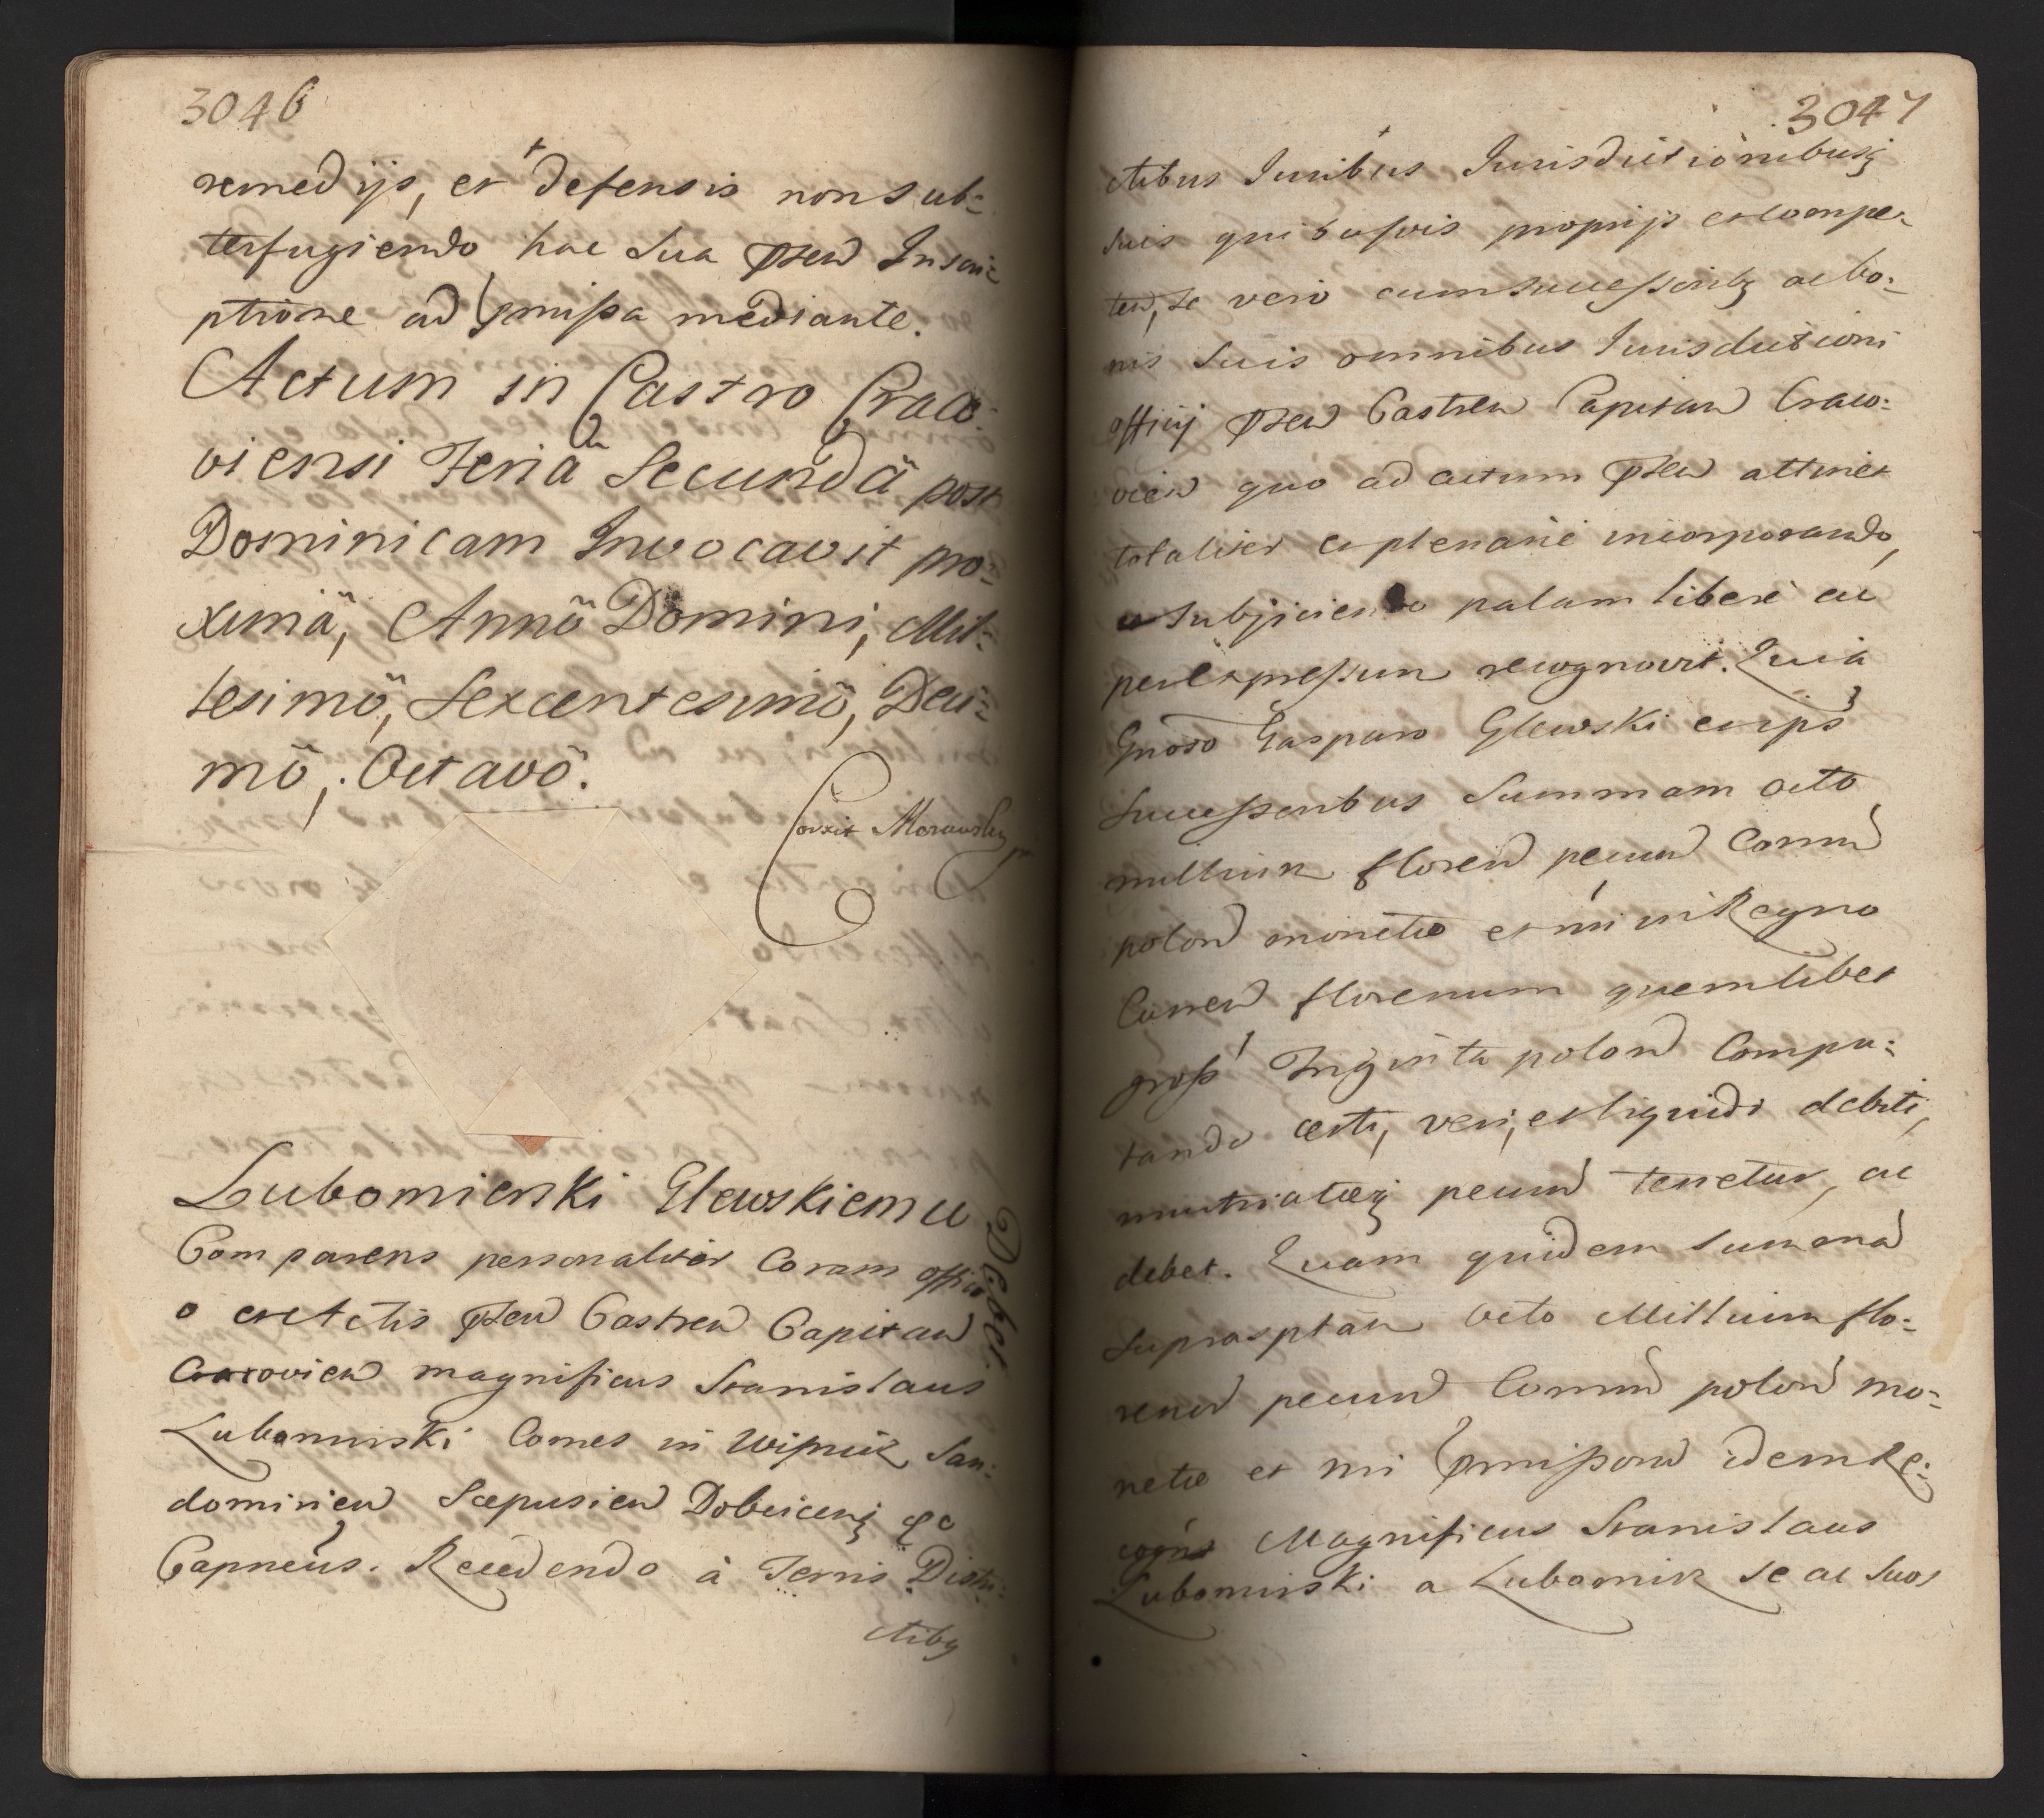 3046
remedijs, et defensis non sub=
terfugiendo hac sua pten Inscri=
ptione ad pmissa mediante.
Actum in Castro Craco:
viensi Feria Secunda post
Dominicam Invocavit pro=
xima, Anno Domini, Mil=
lesimo, Sexcentesimo, Deci=
mo, Octavo.
Corxit Morawsky
Lubomirski Glewskiemu
Debet.
Comparens personaliter Coram offici
o et Actis pten Castren Capitan
Cracovien magnificus Stanislaus
Lubomirski Comes in Wisnicz San=
domirien Scepusien Dobcicenq &c
Capneus. Recedendo à Terris Distri=
ctibq
3047
ctibus Iuribus Iurisdictionibusq
suis quibusvis proprijs et compe=
ten, se vero cum successoribq ac bo=
nis suis omnibus Iurisdictioni
officij pten Castren Capitan Craco=
vien quo ad actum pten attinet
totaliter et plenarie incorporando,
et subijciendo palam libere ac
per expressum recognovit. Quia
Gnoso Gasparo Glewski eiusqs
successoribus Summam octo
millium floren pecun Comun
polon monetæ et nri in Regno
Curren florenum quemlibet
gross Triginta polon Compu=
tando certi, veri, et liquidi debiti,
mutuatæq pecun tenetur, ac
debet. Quam quidem summam
suprasptam octo Millium flo=
renor pecun Comun polon mo=
netæ et nri pmissorum idem Re=
cogns Magnificus Stanislaus
Lubomirski a Lubomirz se ac suos